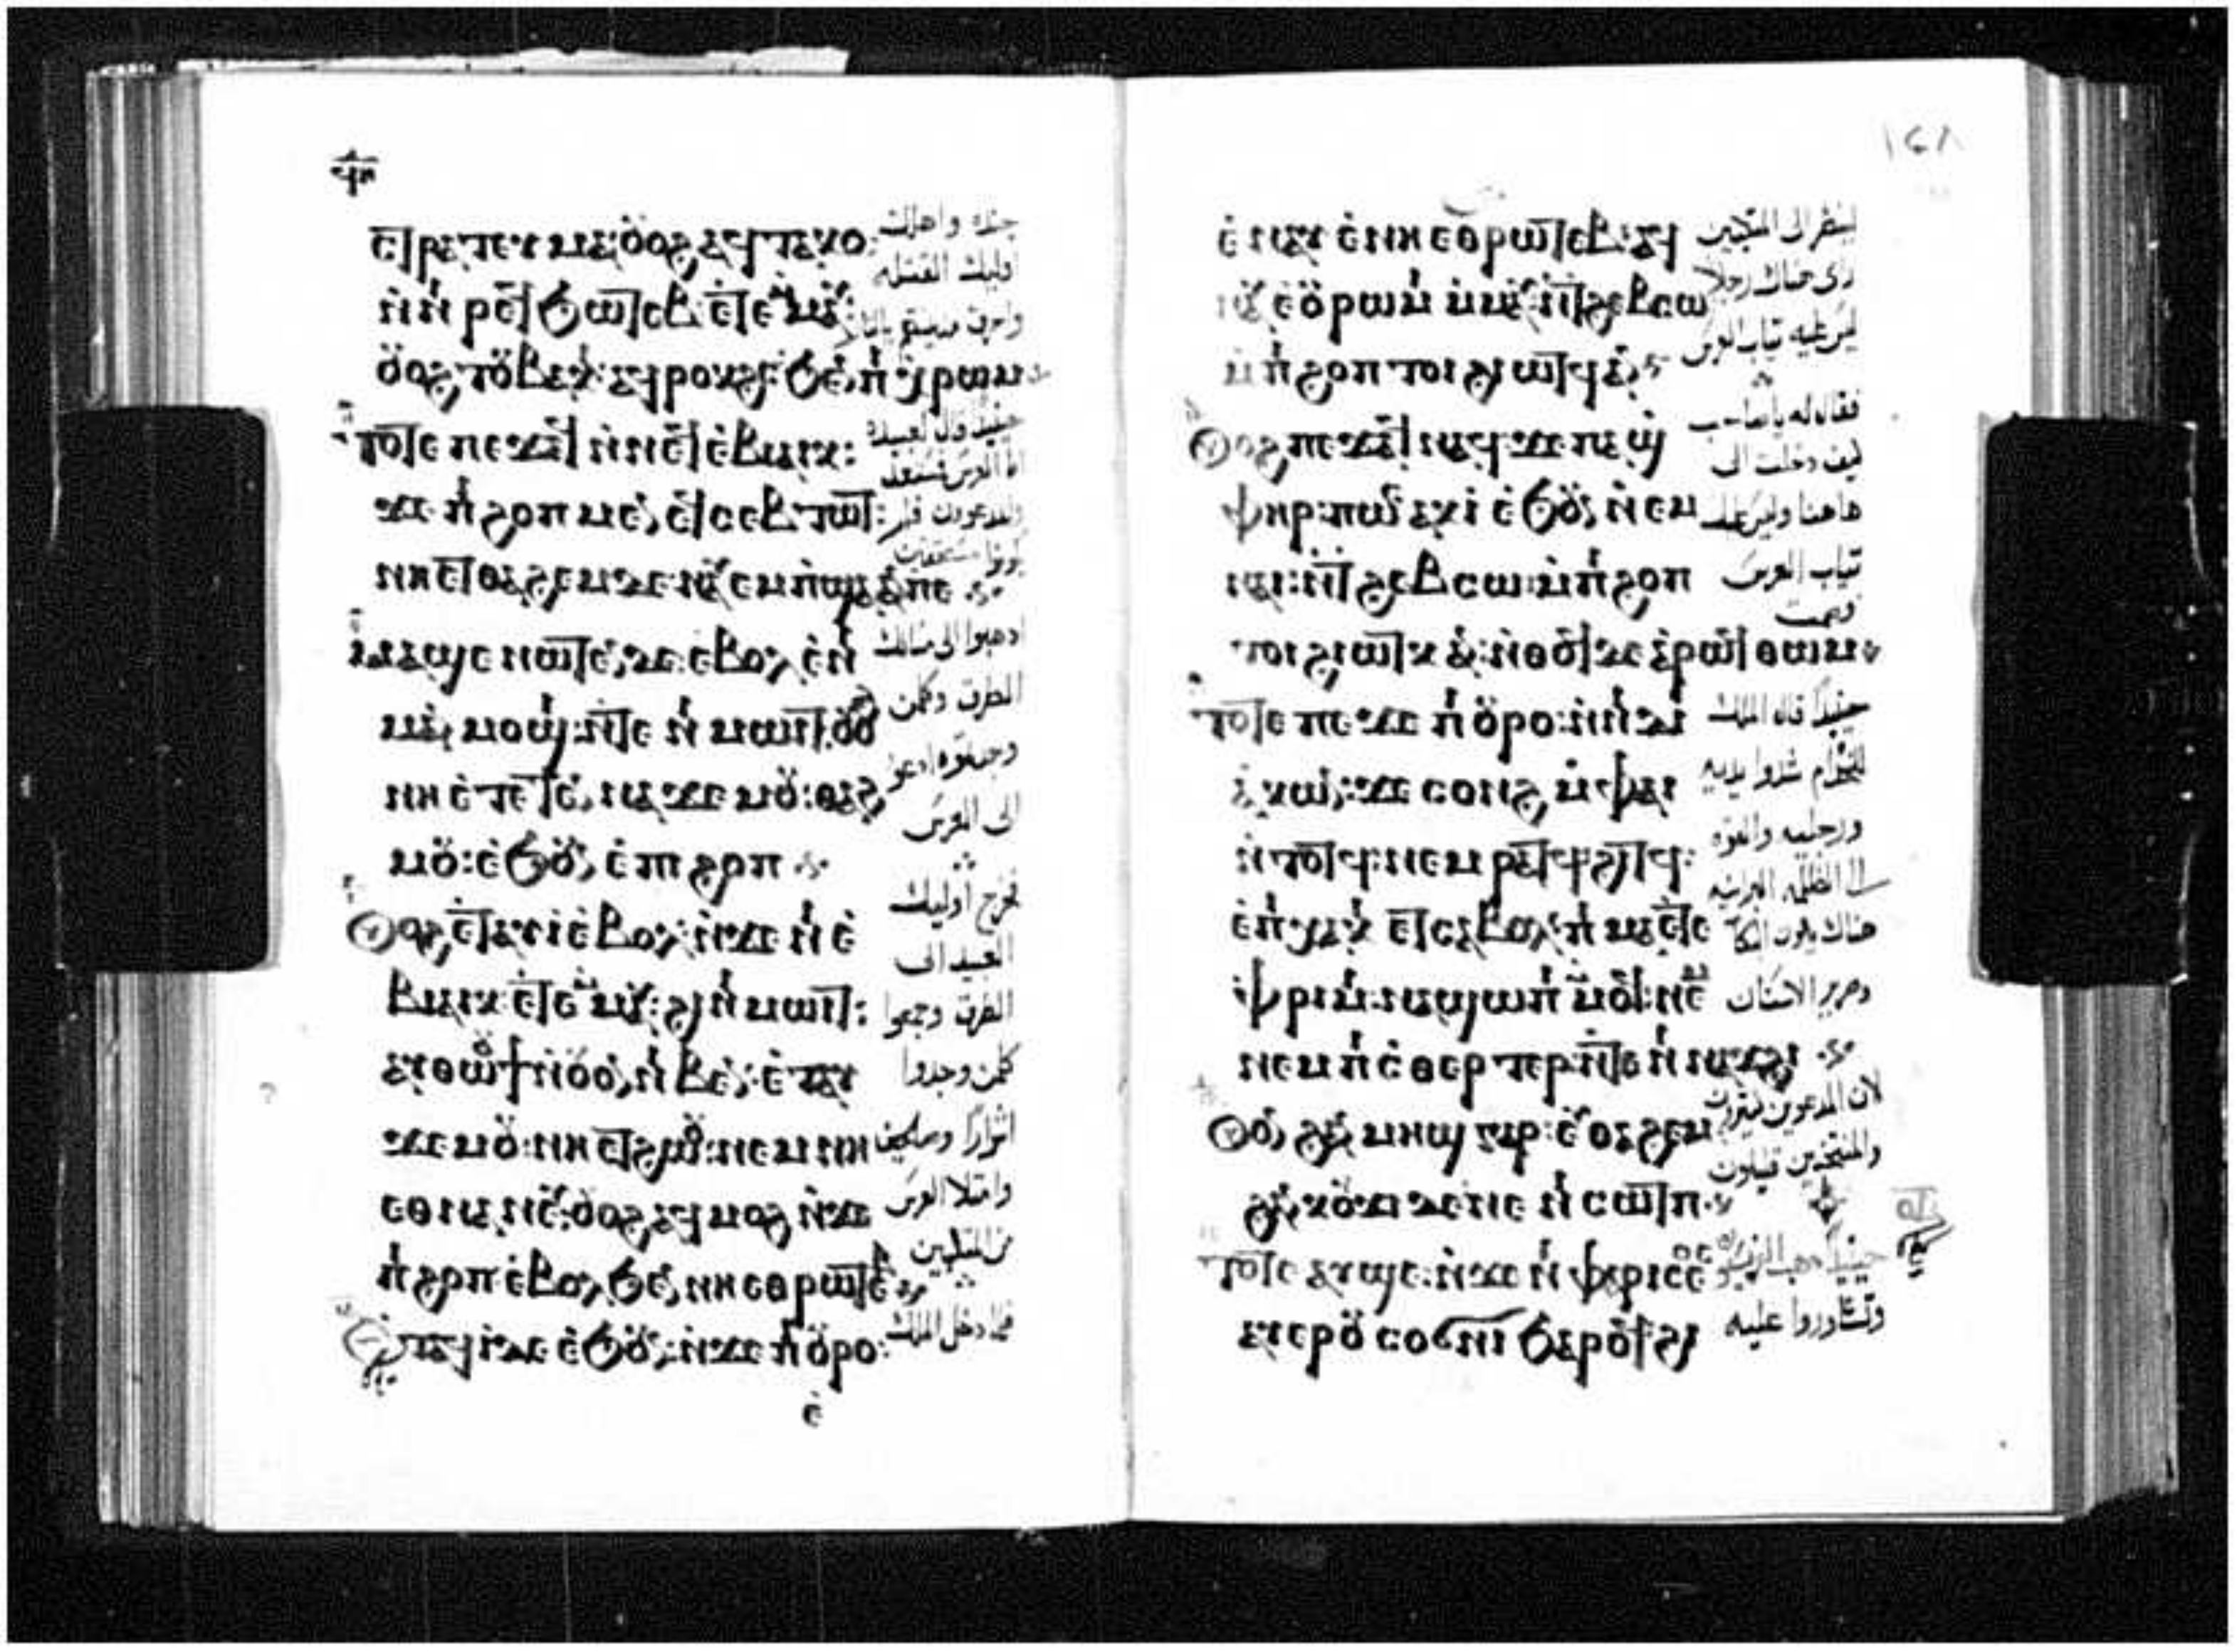 ϥⲏ
ⲥⲧⲣⲁⲧⲉⲩⲙⲁ ⲟⲩⲟϩ ⲁϥⲧⲁⲕⲟ
ⲛⲛⲓⲣⲉϥϧⲱⲧⲉⲃ ⲉⲧⲉⲙⲙⲁⲩ
ⲟⲩⲟϩ ⲧⲟⲩⲃⲁⲕⲓ ⲁϥⲣⲟⲕϩⲥ ϧⲉⲛ ⲡⲓⲭⲣⲱⲙ
ⲧⲟⲧⲉ ⲡⲉϫⲁϥ ⲛⲛⲉϥⲉⲃⲓⲁⲓⲕ
ϫⲉ ⲡⲓϩⲟⲡ ⲙⲉⲛ ϥⲥⲉⲃⲧⲱⲧ
ⲛⲏⲉⲧⲑⲁϩⲉⲙ ⲇⲉ ⲛⲁⲩⲉⲙⲡϣⲁ ⲁⲛ ⲡⲉ
ⲙⲁϣⲉ ⲛⲱⲧⲉⲛ ⲇⲉ ⲉⲃⲟⲗ ⲉⲛⲓ
ⲙⲁⲙⲙⲟϣⲓ ⲛⲧⲉ ⲛⲓⲙⲱⲓⲧ ⲟⲩⲟϩ
ⲛⲏ ⲉⲧⲉⲧⲉⲛⲛⲁϫⲉⲙⲟⲩ ⲑⲁϩ
ⲙⲟⲩ ⲉϧⲟⲩⲛ ⲉⲡⲓϩⲟⲡ
ⲟⲩⲟϩ ⲉⲧⲁⲩⲓ ⲉⲃⲟⲗ ⲛϫⲉ ⲛⲓⲉ
ⲃⲓⲁⲓⲕ ⲉⲧⲉⲙⲙⲁⲩ ϩⲓ ⲛⲓⲙⲱⲓⲧ
ⲁⲩⲑⲱⲟⲩϯ ⲛⲟⲩⲟⲛ ⲛⲓⲃⲉⲛ ⲉⲧⲁⲩ
ϫⲉⲙⲟⲩ ⲛⲏ ⲉⲧϩⲱⲟⲩ ⲛⲉⲙ ⲛⲏ
ⲉⲑⲛⲁⲛⲉⲩ ⲟⲩⲟϩ ⲁϥⲙⲟϩ ⲛϫⲉ
ⲡⲓϩⲟⲡ ⲉⲃⲟⲗ ϧⲉⲛ ⲛⲏ ⲉⲑⲣⲱⲧⲉⲃ
ⲉⲧⲁϥⲓ ⲇⲉ ⲉϧⲟⲩⲛ ⲛϫⲉ ⲡⲟⲩⲣⲟ
ⲉ
جنده واهلك
اوليك القتله
واحرق مدينتهم بالنار
حينيذ قال لعبيده
اما العرس فمستعد
والمدعوون فلم
يكونوا مستحقين
اذهبوا الى مسالك
الطرق وكلمن
وجدتموه ادعو
الى العرس
فخرج اوليك
العبيد الى
الطرق وجمعوا
كلمن وجدوا
اشرارًا وصالحين
وامتلا العرس
من المتكيين
فلما دخل الملك
١٤٨
ⲉⲛⲁⲩ ⲉⲛⲏ ⲉⲑⲣⲱⲧⲉⲃ ⲁϥ
ⲛⲁⲩ ⲉⲟⲩⲣⲱⲙⲓ ⲙⲙⲁⲩ ⲛϯϩⲉⲃⲥⲱ
ⲙⲡⲓϩⲟⲡ ⲧⲟⲓ ϩⲓⲱⲧϥ ⲁⲛ
ⲟⲩⲟϩ ⲡⲉϫⲁϥ ⲛⲁϥ ϫⲉ ⲡⲁϣ
ⲫⲏⲣ ⲡⲱⲥ ⲁⲕⲓ ⲉϧⲟⲩⲛ ⲛⲉⲙ
ⲛⲁⲓ ⲛϯϩⲉⲃⲥⲱ ⲙⲡⲓϩⲟⲡ
ⲧⲟⲓ ϩⲓⲱⲧⲕ ⲁⲛ ⲛⲑⲟϥ ⲇⲉ ⲁⲣⲱϥ ⲑⲱⲙ
ⲧⲟⲧⲉ ⲡⲉϫⲉ ⲡⲟⲩⲣⲟ ⲛⲛⲓⲇⲓ
ⲁⲕⲱⲛ ϫⲉ ⲥⲟⲛϩ ⲙⲫⲁⲓ
ⲛⲧⲟⲧϥ ⲛⲉⲙ ⲣⲁⲧϥ ϩⲓⲧϥ
ⲉⲡⲓⲭⲁⲕⲓ ⲉⲧⲥⲁⲃⲟⲗ ⲡⲓⲙⲁ ⲉⲧⲉ
ⲫⲣⲓⲙⲓ ⲛⲁϣⲱⲡⲓ ⲙⲙⲟϥ ⲛⲉⲙ
ⲛⲉⲙ ⲡⲓⲥⲑⲉⲣⲧⲉⲣ ⲛⲧⲉ ⲛⲓⲛⲁϫϩⲓ
ⲟⲩⲟⲛ ϩⲁⲛⲙⲏϣ ⲅⲁⲣ ⲉⲩⲑⲁϩⲉⲙ
ϩⲁⲛⲕⲟⲩϫⲓ ⲇⲉ ⲛⲉ ⲛⲓⲥⲱⲧⲡ
ⲧⲟⲧⲉ ⲁⲩϣⲉ ⲛϫⲉ ⲛⲓⲫⲁⲣⲓⲥⲉⲟⲥ
ⲁⲩⲉⲣⲟⲩⲥⲟϭⲛⲓ ϧⲁⲣⲟϥ ϩⲓ
لينظر الى المتكيين
راى هناك رجلاً
ليس عليه ثياب العرس
فقال له ياصاحب
كيف دخلت الى
هاهنا وليس عليك
ثياب العرس
فصمت
حينيذ قال الملك
للخدام شدوا يديه
ورجليه والقوه
الى الظلمه البرانيه
هناك يكون البكا
وصرير الاسنان
لان المدعوين كثيرون
والمنتخبين قليلون
حينيذ ذهب الفريسيون
وتشاوروا عليه